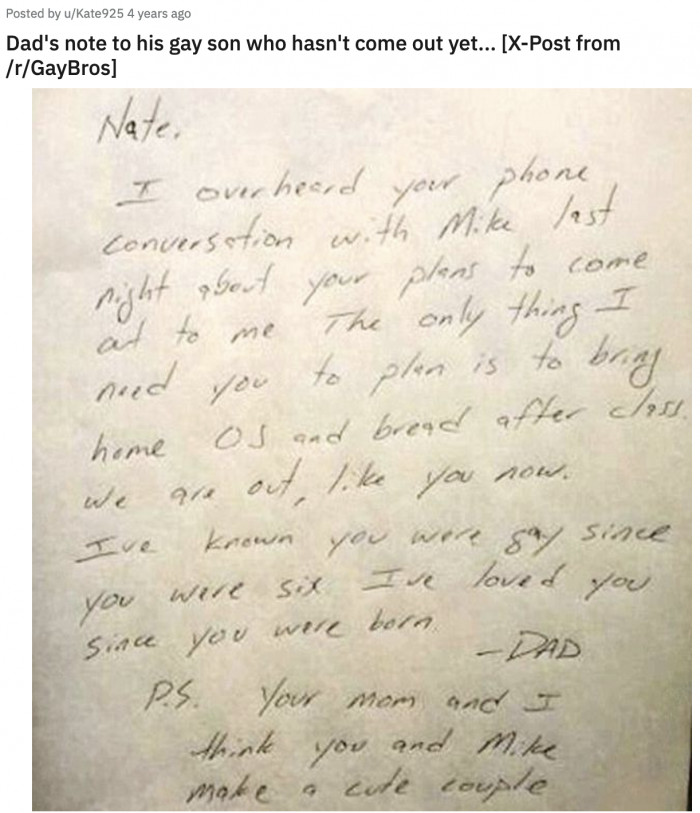 Posted by u/Kate925 4 years ago
Dad's note to his gay son who hasn't come out yet... [X-Post from
/r/GayBros]
Nate,
I overheard your phone
conversation with Mike last
night about your plans to come
out to me The only thing I
need you to plan is to bring
home OJ and bread after class.
We are out, like you now.
I've known you were gay since
you were six I've loved you
since you were born.
-DAD
P.S. Your mom and I
think you and Mike
make a cute couple